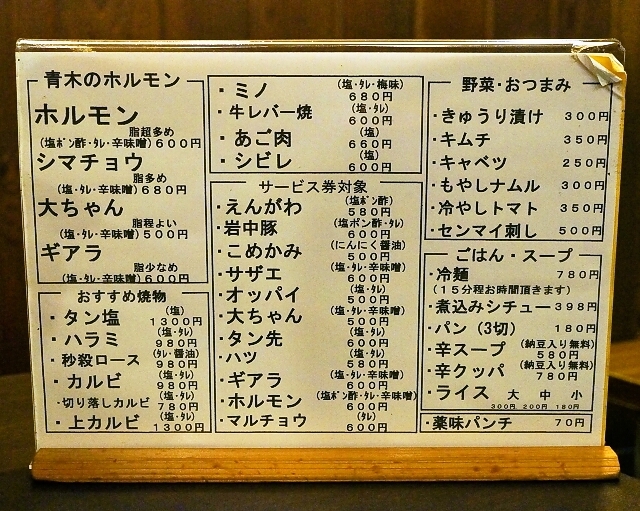 青木のホルモン
ホルモン
脂超多め
(塩ポン酢・タレ・辛味噌)600円
シマチョウ
脂多め
(塩・タレ・辛味噌)680円
大ちゃん
脂程よい
(塩・タレ・辛味噌)500円
ギアラ
脂少なめ
(塩・タレ・辛味噌)600円
おすすめ焼物
・タン塩 (塩) 1300円
・ハラミ (塩・タレ) 980円
・秒殺ロース (タレ・醤油) 980円
・カルビ (塩・タレ) 980円
・切り落しカルビ (塩・タレ) 780円
・上カルビ (塩・タレ) 1300円
・ミノ (塩・タレ・梅味) 680円
・牛レバー焼 (塩・タレ) 600円
・あご肉 (塩) 660円
・シビレ (塩) 600円
サービス券対象
・えんがわ (塩ポン酢) 580円
・岩中豚 (塩ポン酢・タレ) 600円
・こめかみ (にんにく醤油) 500円
・サザエ (塩・タレ・辛味噌) 600円
・オッパイ (塩・タレ) 500円
・大ちゃん (塩・タレ・辛味噌) 500円
・タン先 (塩・タレ) 600円
・ハツ (塩・タレ) 580円
・ギアラ (塩・タレ・辛味噌) 600円
・ホルモン (塩ポン酢・タレ・辛味噌) 600円
・マルチョウ (タレ) 600円
野菜・おつまみ
・きゅうり漬け 300円
・キムチ 350円
・キャベツ 250円
・もやしナムル 300円
・冷やしトマト 350円
・センマイ刺し 500円
ごはん・スープ
・冷麺 780円
(15分程お時間頂きます)
・煮込みシチュー 398円
・パン(3切) 180円
・辛スープ (納豆入り無料) 580円
・辛クッパ (納豆入り無料) 780円
・ライス 大 中 小
300円 200円 180円
・薬味パンチ 70円